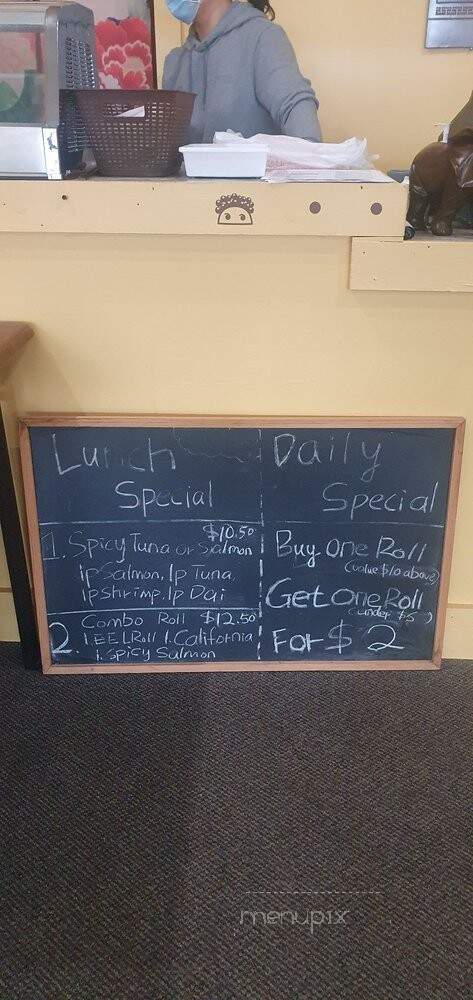 Lunch
Special
$10.50
1. Spicy Tuna or Salmon
1pSalmon, 1p Tuna,
1pShrimp, 1p Dai
Combo Roll $12.50
2. 1 EEL Roll 1. California
1. Spicy Salmon
Daily
Special
Buy One Roll
(value $10 above)
Get One Roll
(under $5)
For $2
menupix